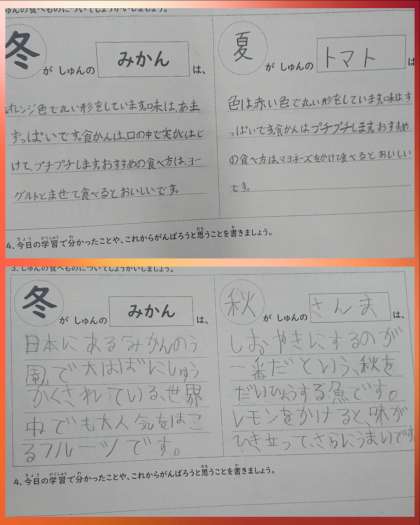 しゅんの食べものについてしょうかいしましょう。
冬 が しゅんの みかん は、
オレンジ色で丸い形をしています。味は、あま
すっぱいです。食かんは、口の中で実がはじ
けて、プチプチします。おすすめの食べ方は、ヨー
グルトとまぜて食べるとおいしいです。
夏 が しゅんの トマト は
色は赤い色で丸い形をしています。味はす
っぱいです。食かんは、プチプチします。おすすめ
の食べ方は、マヨネーズをかけて食べるとおいしい
です。
4、今日の学習で分かったことや、これからがんばろうと思うことを書きましょう。
3、しゅんの食べものについてしょうかいしましょう。
冬 が しゅんの みかん は、
日本にあるみかんのう
園で大はばにしゅう
かくされている、世界
中でも大人気をほこ
るフルーツです。
秋 が しゅんの さんま は、
しおやきにするのが
一番だという、秋を
だいひょうする魚です。
レモンをかけると、味が
ひき立って、さらにうまいです
4、今日の学習で分かったことや、これからがんばろうと思うことを書きましょう。